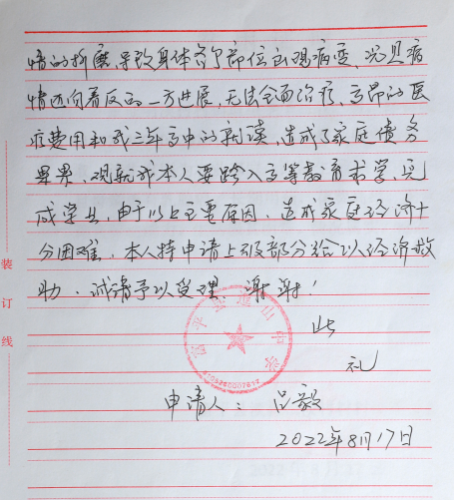 情的折磨,导致身体各个部位出现病变,尤其病
情迈向着反的一方进展,无法全面治疗,高昂的医
疗费用和我三年高中的就读,造成了家庭债务
累累,现就我本人要跨入高等教育求学,完
成学业,由于以上主要原因,造成家庭经济十
分困难,本人特申请上级部分给以经济救
助.诚请予以受理.谢谢!
此
礼
申请人:吕毅
2022年8月17日
装
订
线